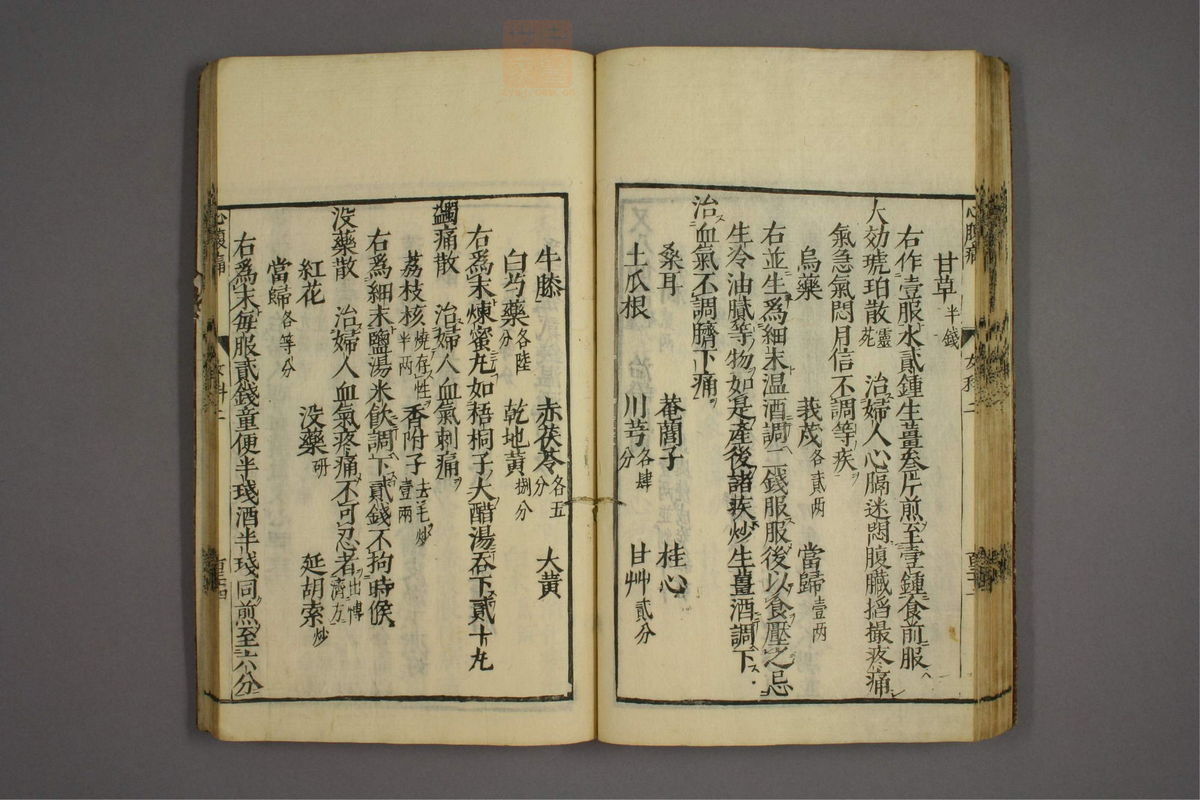 心腹痛 女科二
甘草半錢
右作壹服水貳鍾生薑叁片煎至壹鍾食前服
大効琥珀散靈死 治婦人心膈迷悶腹臟搯撮疼痛
氣急氣悶月信不調等疾
烏藥 莪茂各貳两 當歸壹两
右並生爲細末温酒調二錢服服後以食壓之忌
生冷油膩等物如是產後諸疾炒生薑酒調下
治血氣不調臍下痛
桑耳 菴䕡子 桂心
土瓜根 川芎各肆分 甘艸貳分
牛膝 赤茯苓各五分 大黃
白芍藥各陸分 乾地黃捌分
右爲末煉蜜丸如梧桐子大醋湯吞下貳十丸
蠲痛散 治婦人血氣刺痛
荔枝核燒存性半两 香附子去毛炒壹兩
右爲細末鹽湯米飲調下貳錢不拘時候
没藥散 治婦人血氣疼痛不可忍者出博濟方
紅花 没藥研 延胡索炒
當歸各等分
右爲末每服貳錢童便半琖酒半琖同煎至六分
心腹痛 女科二